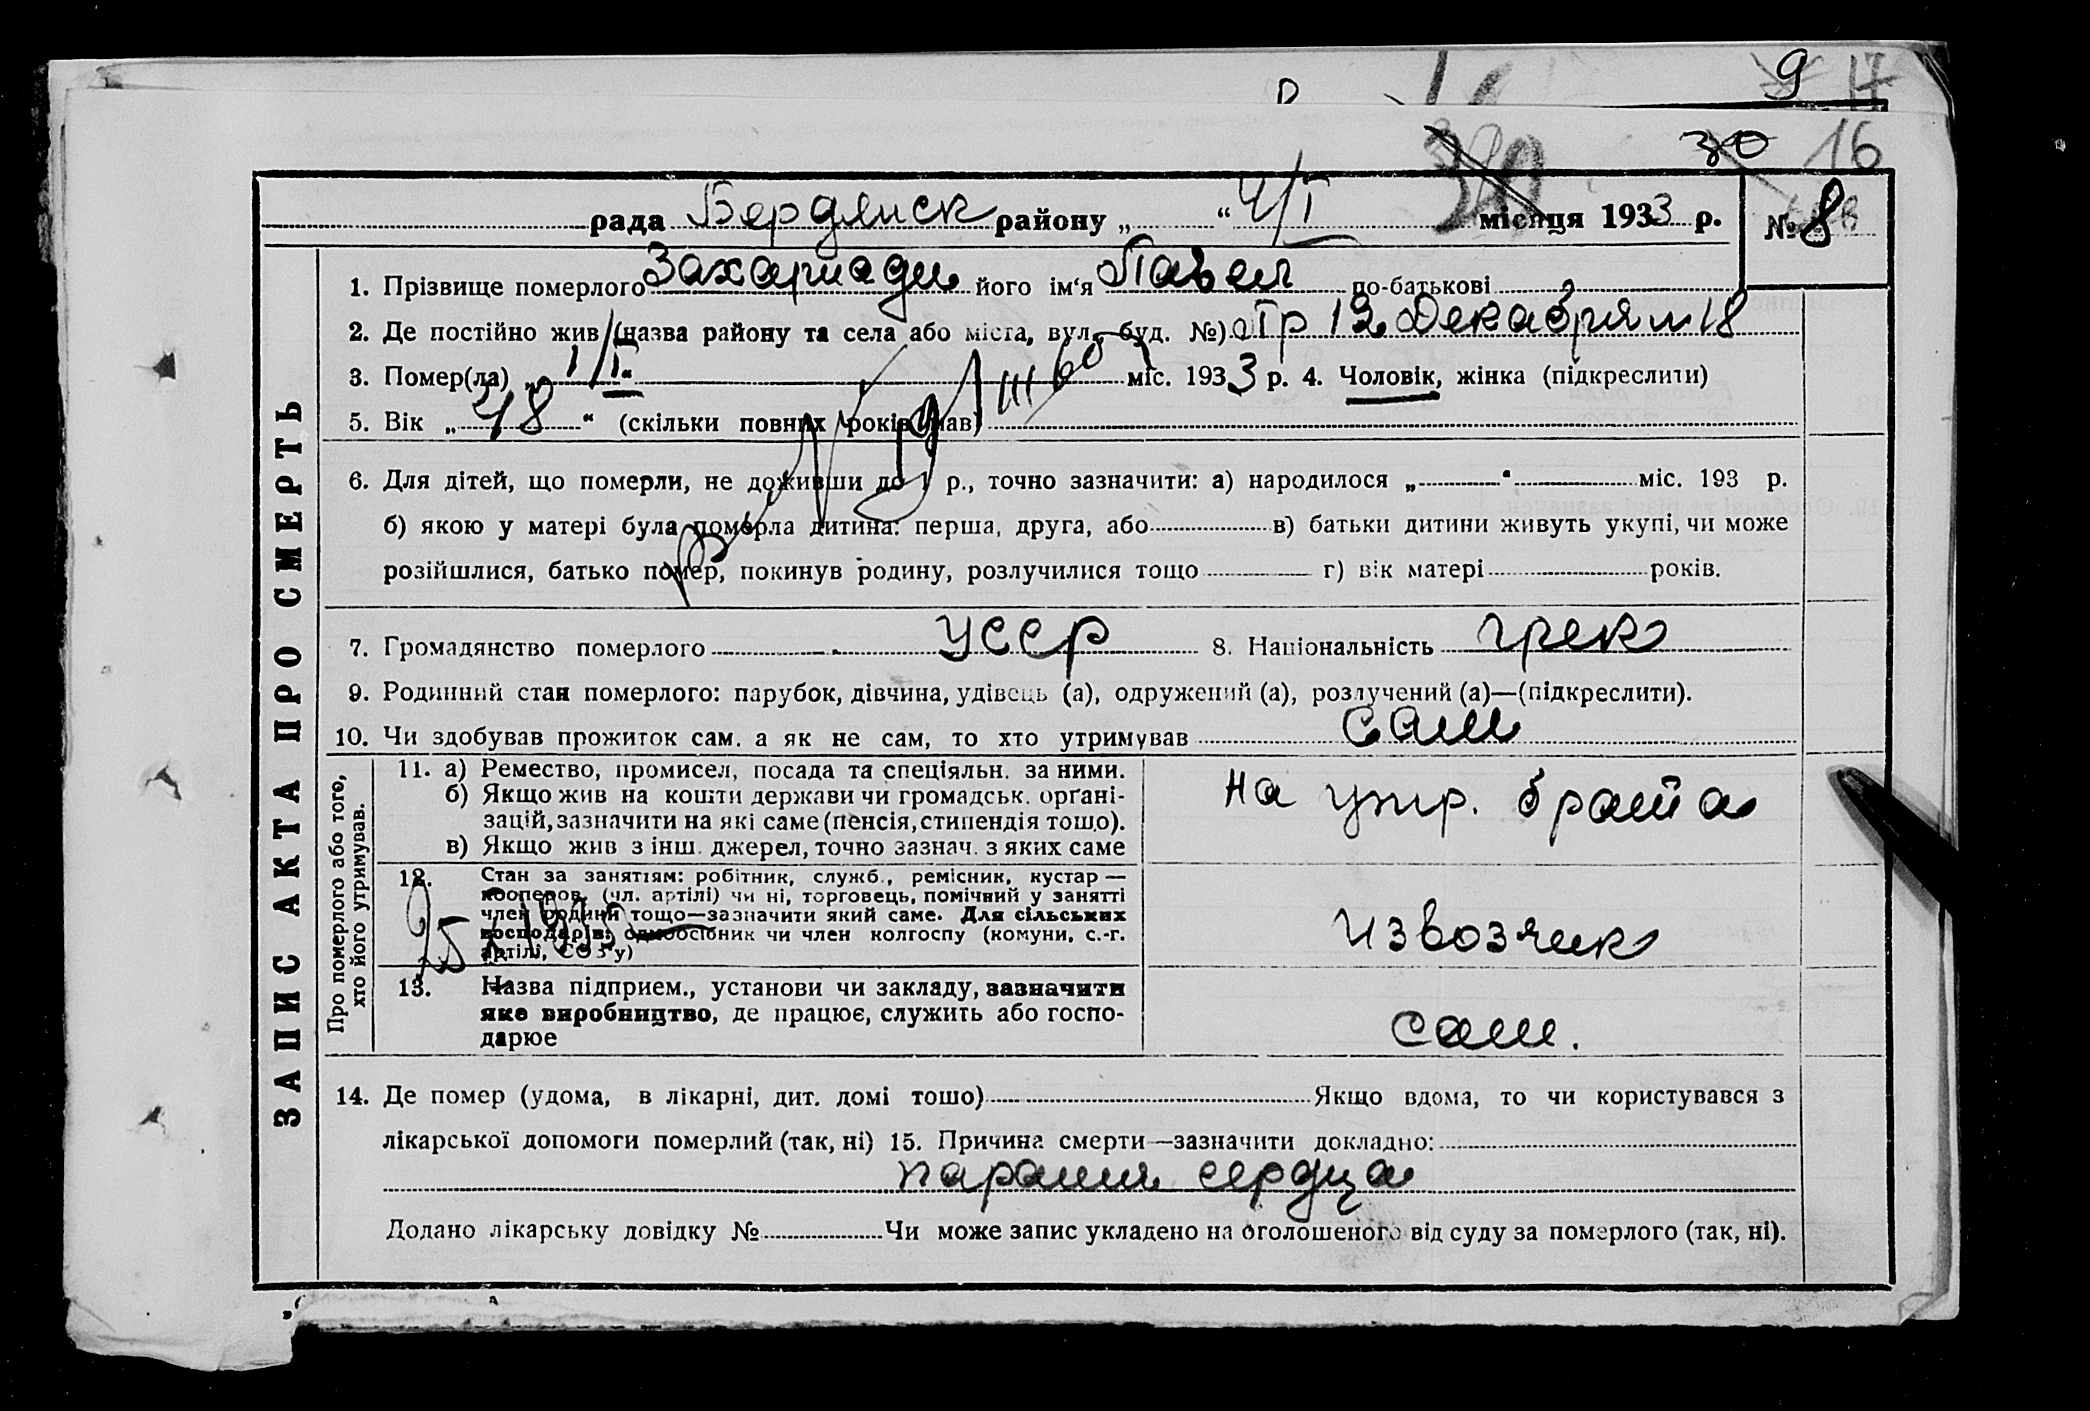 9 17
30 16
рада Бердянск району „ “ 4/I місяця 1933 р. № 8
ЗАПИС АКТА ПРО СМЕРТЬ
1. Прізвище померлого Захариади його ім‘я Павел по-батькові
2. Де постійно жив (назва району та села або міста, вул., буд. №) 12 Декабря № 18
3. Помер(ла) „ 1/I “ міс. 1933 р. 4. Чоловік, жінка (підкреслити)
5. Вік „ 48 “ (скільки повних років мав)
6. Для дітей, що померли, не доживши до 1 р., точно зазначити: а) народилося „ “ міс. 193 р.
б) якою у матері була померла дитина: перша, друга, або в) батьки дитини живуть укупі, чи може
розійшлися, батько помер, покинув родину, розлучилися тощо г) вік матері років.
7. Громадянство померлого УССР 8. Національність грек
9. Родинний стан померлого: парубок, дівчина, удівець (а), одружений (а), розлучений (а)—(підкреслити).
10. Чи здобував прожиток сам. а як не сам, то хто утримував сам
Про померлого або того,
хто його утримував.
11. а) Ремество, промисел, посада та спеціяльн. за ними.
б) Якщо жив на кошти держави чи громадськ. орґані-
зацій, зазначити на які саме (пенсія, стипендія тощо).
в) Якщо жив з інш. джерел, точно зазнач. з яких саме
на утр. брата
12. Стан за заняттям: робітник, служб., ремісник, кустар —
кооперов. (чл. артілі) чи ні, торговець, помічний у занятті
член родини тощо—зазначити який саме. Для сільських
господарів: одноосібник чи член колгоспу (комуни, с.-г.
артілі, СОЗ‘у)
извозчик
13. Назва підприєм., установи чи закладу, зазначити
яке виробництво, де працює, служить або госпо-
дарює
сам.
14. Де помер (удома, в лікарні, дит. домі тощо) Якщо вдома, то чи користувався з
лікарської допомоги померлий (так, ні) 15. Причина смерти—зазначити докладно:
паралич сердца
Додано лікарську довідку № Чи може запис укладено на оголошеного від суду за померлого (так, ні).